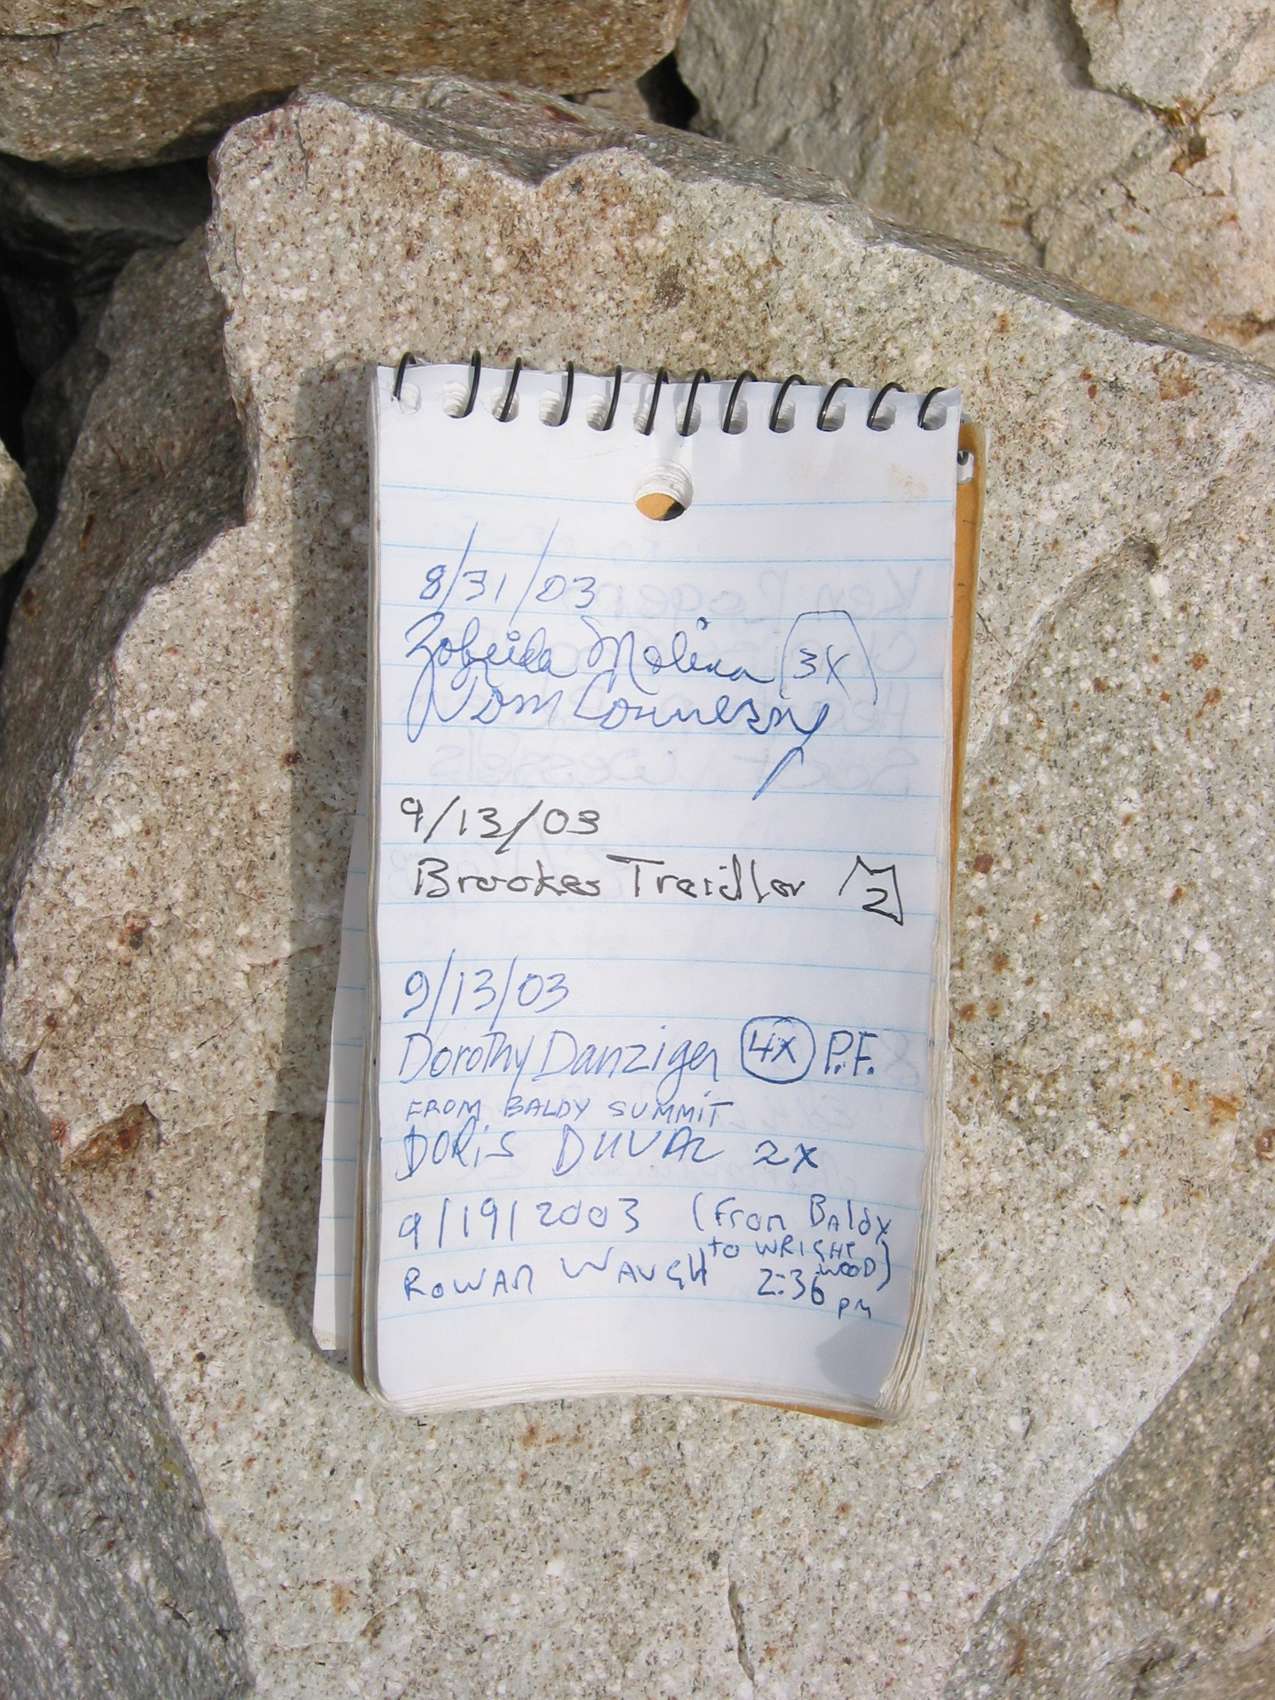 8/31/03
Zobeida Molina 3X
Tom Connery
9/13/03
Brookes Treidler 2
9/13/03
Dorothy Danziger 4x P.F.
FROM BALDY SUMMIT
DORiS DUVAL 2x
9/19/2003 (From BALDY
to WRIGHT
WOOD)
ROWAN WAUGH 2:36 pm